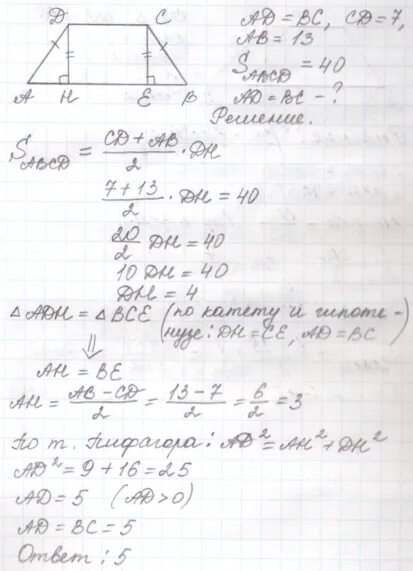 D C
A H E B
AD = BC, CD = 7,
AB = 13
S_ABCD = 40
AD = BC - ?
Решение.
S_ABCD = (CD + AB)/2 · DH
(7 + 13)/2 · DH = 40
20/2 DH = 40
10 DH = 40
DH = 4
△ADH = △BCE (по катету и гипоте-
нузе: DH = CE, AD = BC)
⇓
AH = BE
AH = (AB - CD)/2 = (13 - 7)/2 = 6/2 = 3
По т. Пифагора: AD² = AH² + DH²
AD² = 9 + 16 = 25
AD = 5 (AD > 0)
AD = BC = 5
Ответ: 5